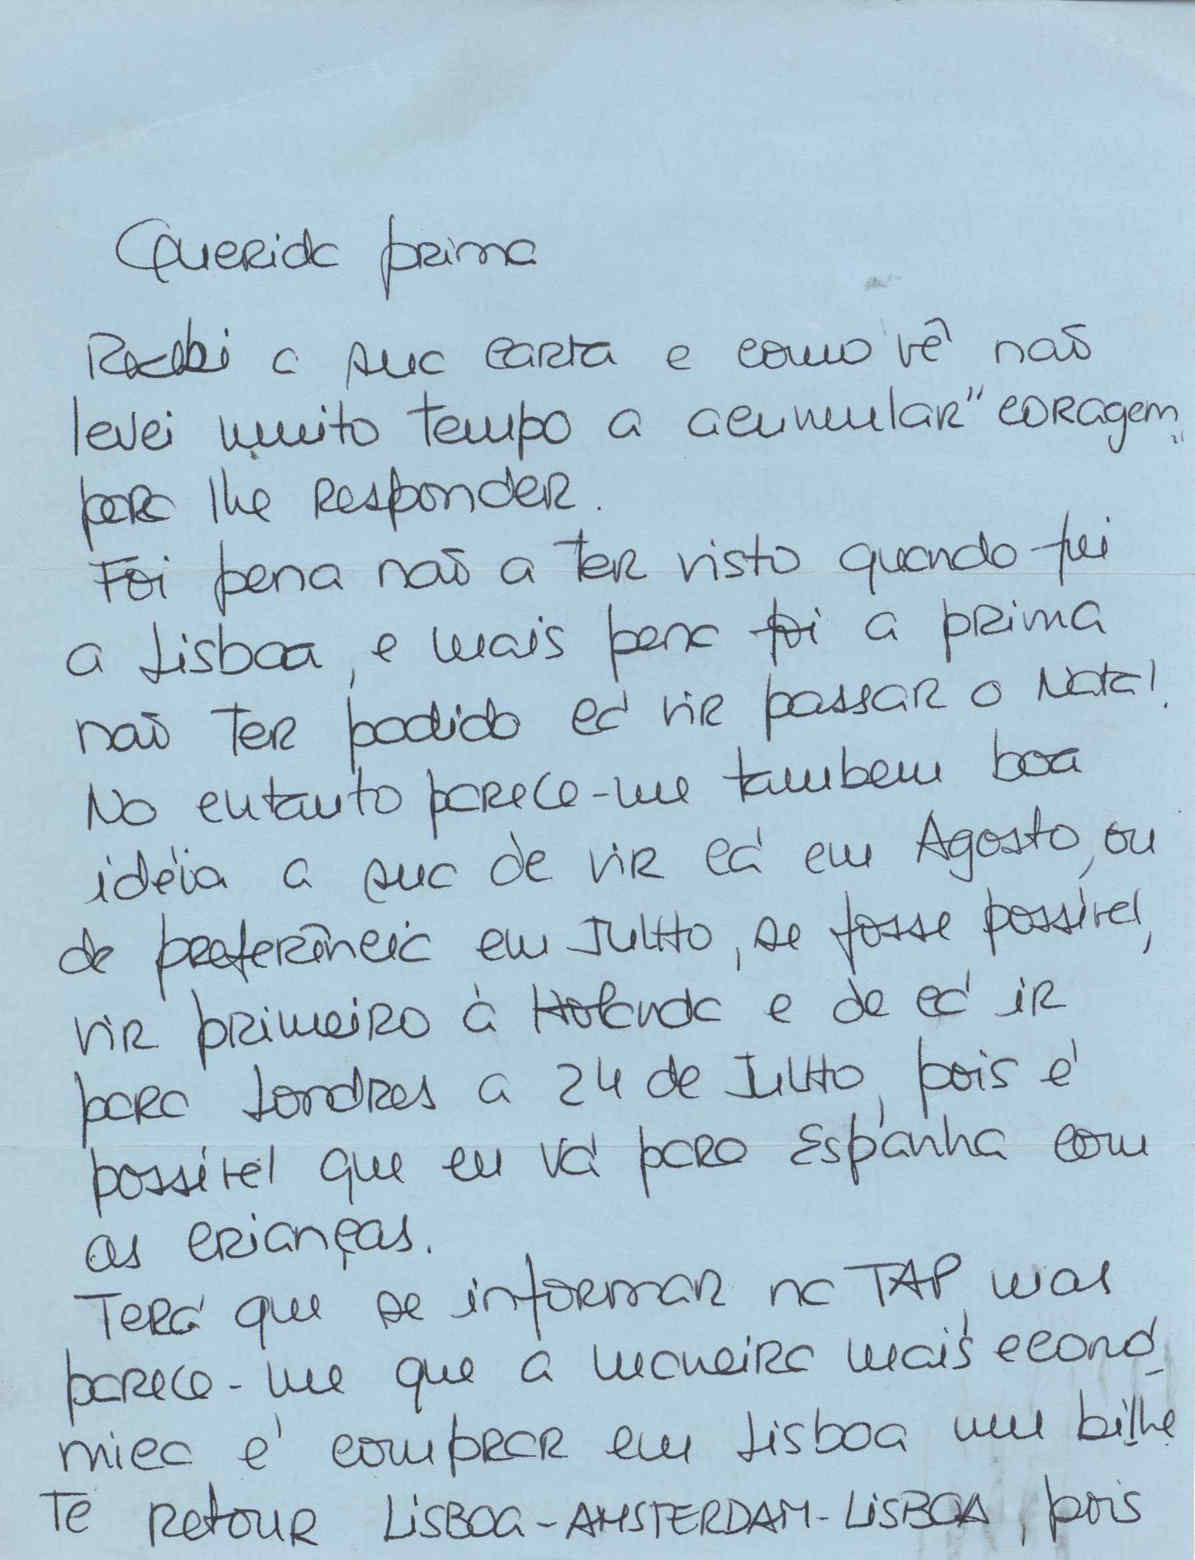 Querida prima
Recebi a sua carta e como vê não
levei muito tempo a acumular "coragem"
para lhe responder.
Foi pena não a ter visto quando fui
a Lisboa, e mais pena foi a prima
não ter podido cá vir passar o Natal.
No entanto parece-me tambem boa
idéia a sua de vir cá em Agosto, ou
de preferência em Julho, se fosse possível,
vir primeiro à Holanda e de cá ir
para Londres a 24 de Julho, pois é
possível que eu vá para Espanha com
as crianças.
Terá que se informar na TAP, mas
parece-me que a maneira mais econó_
mica é comprar em Lisboa um bilhe
te retour LISBOA-AMSTERDAM-LISBOA, pois